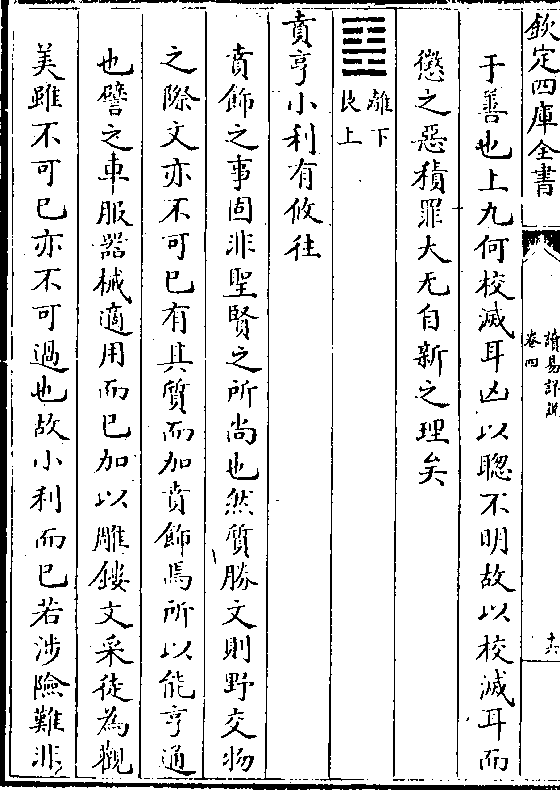 欽定四庫全書
讀易詳說
卷四
十六
于善也上九何校滅耳凶以聰不明故以校滅耳而
懲之惡積罪大无自新之理矣
離下
艮上
賁亨小利有攸往
賁飾之事固非聖賢之所尚也然質勝文則野交物
之際文亦不可已有其質而加賁飾焉所以能亨通
也譬之車服器械適用而已加以雕鏤文采徒為觀
美雖不可已亦不可過也故小利而已若涉險難非